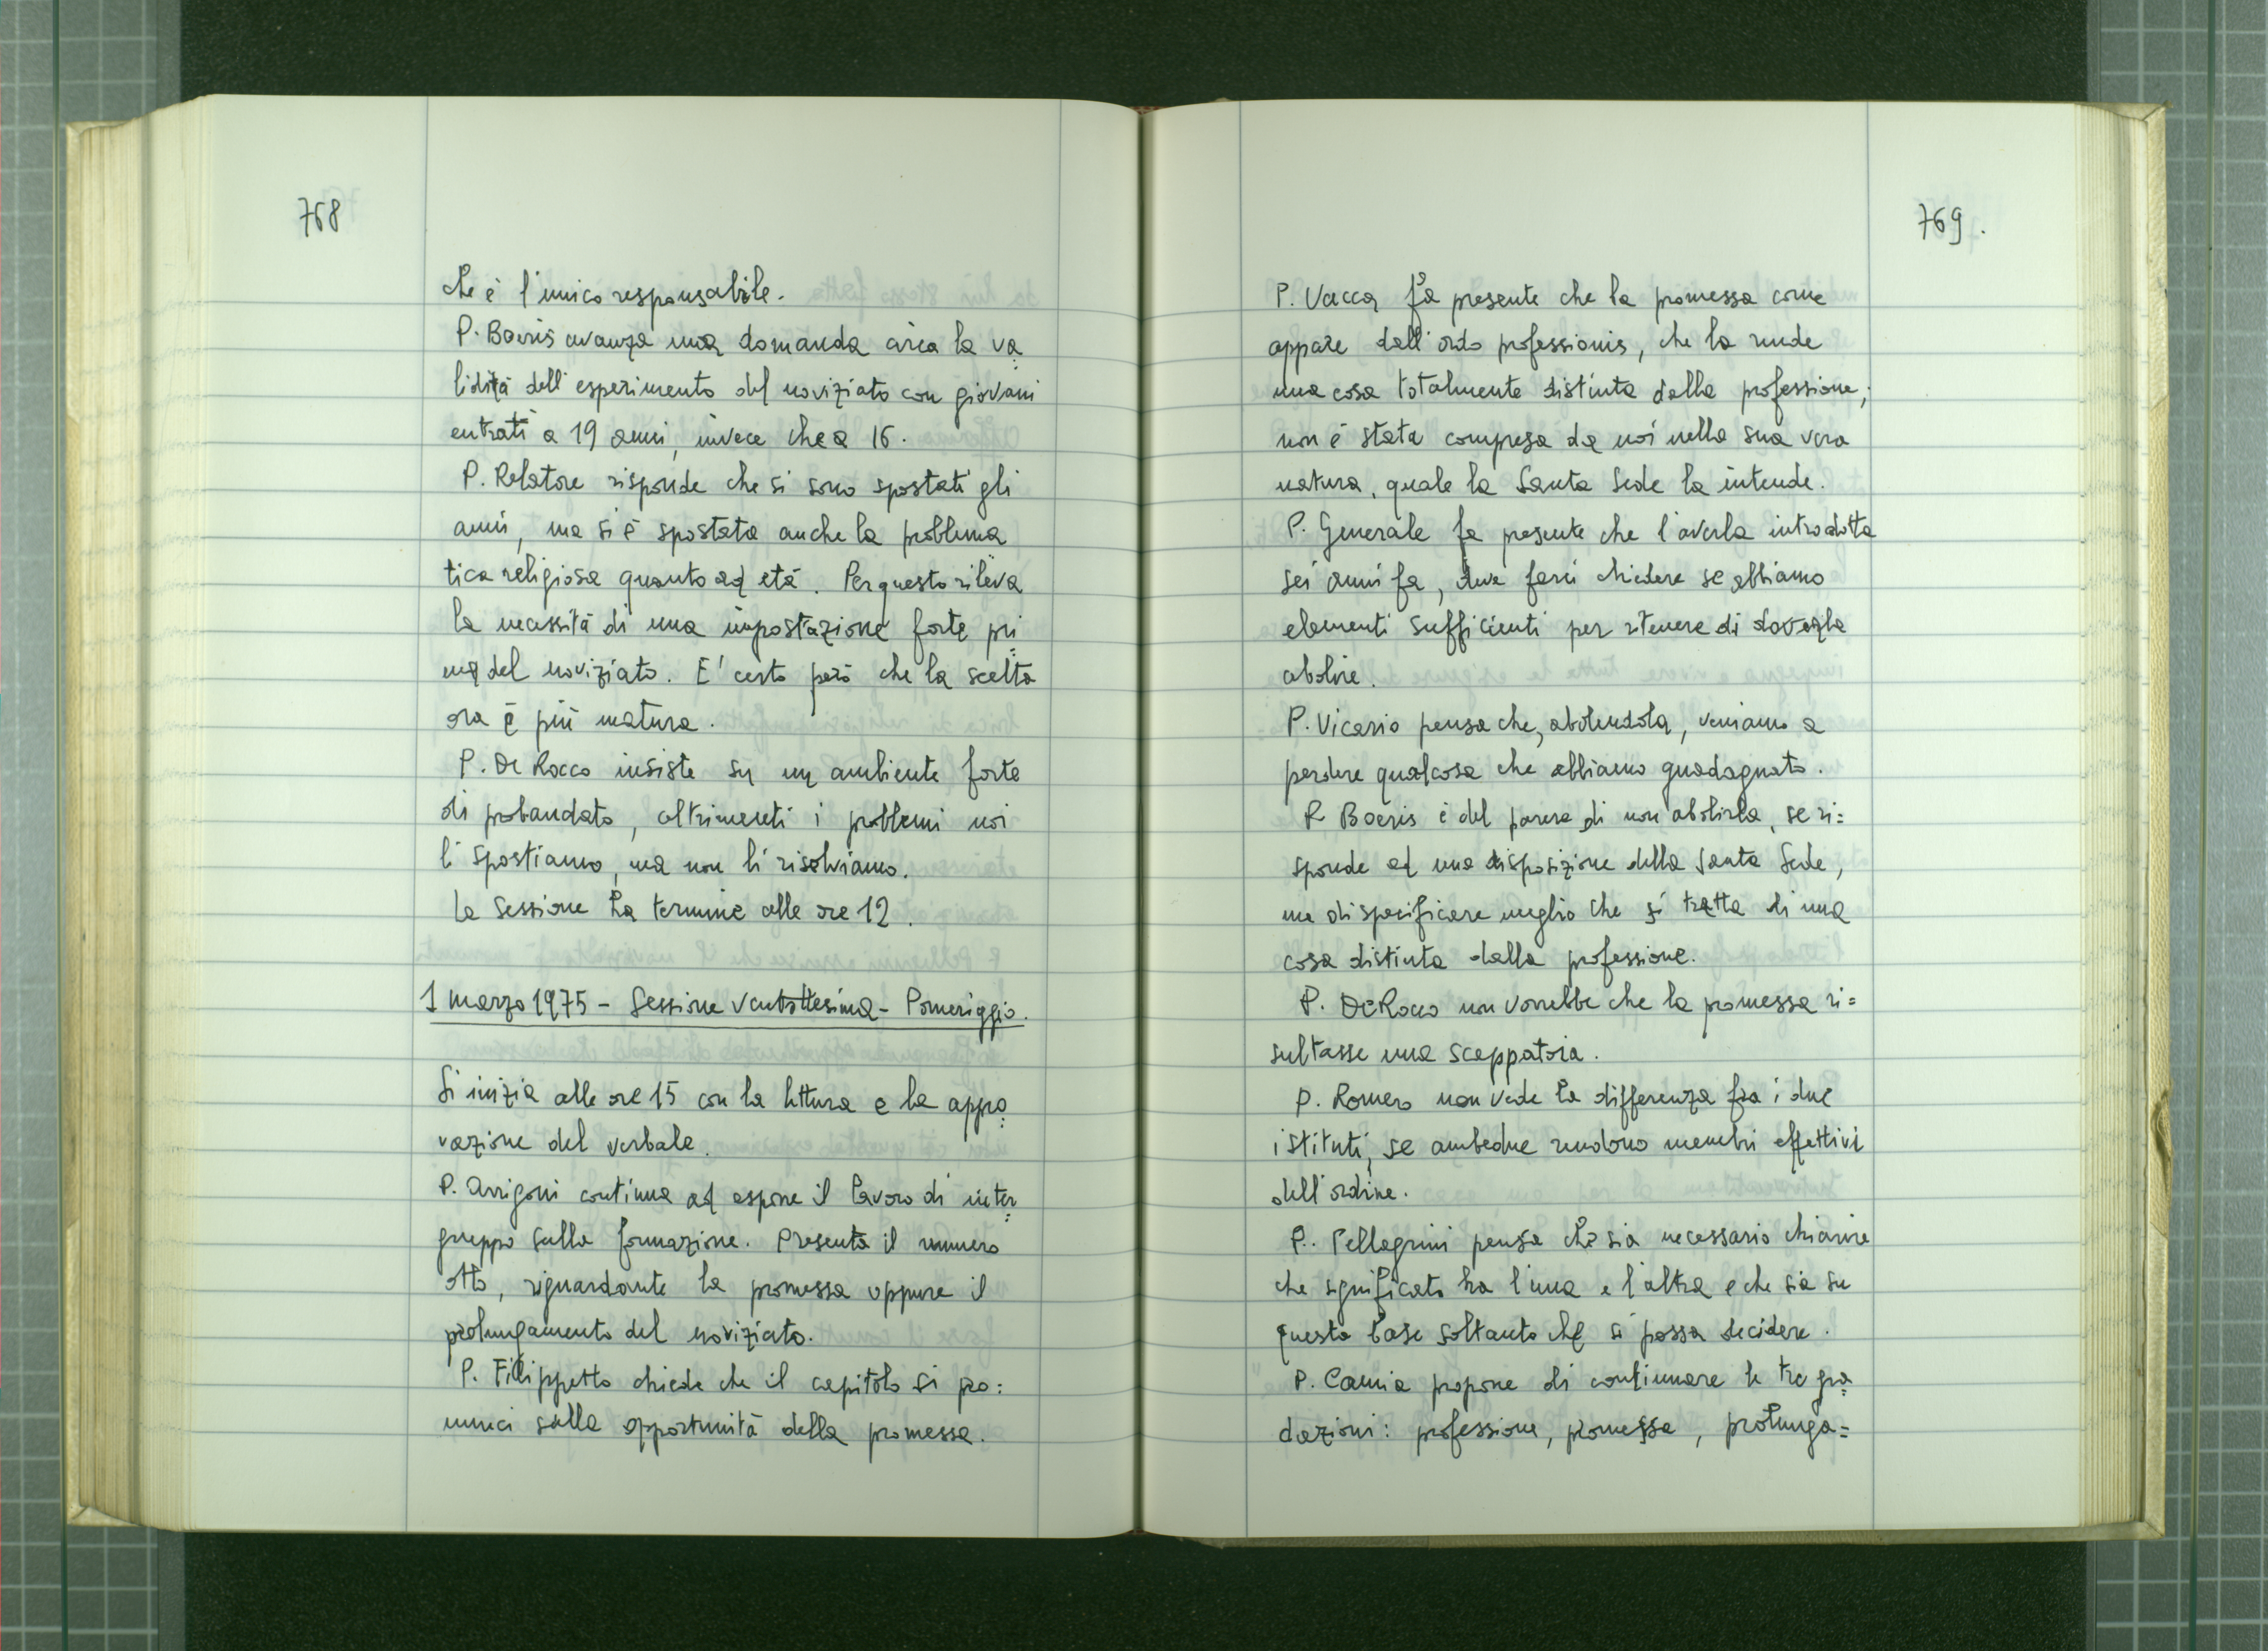 768
che è l'unico responsabile.
P. Boeris avanza una domanda circa la va=
lidità dell'esperimento del noviziato con giovani
entrati a 19 anni, invece che a 16.
P. Relatore risponde che si sono spostati gli
anni, ma si è spostata anche la problema
tica religiosa quanto ad età. Per questo rileva
la necessità di una impostazione forte pri=
ma del noviziato. E' certo però che la scelta
ora è più matura.
P. De Rocco insiste su un ambiente forte
di probandato, altrimenti i problemi noi
li spostiamo, ma non li risolviamo.
La Sessione ha termine alle ore 12.
1 marzo 1975 - Sessione ventottesima - Pomeriggio.
Si inizia alle ore 15 con la lettura e la appro=
vazione del verbale.
P. Arrigoni continua ad esporre il lavoro di inter=
gruppo sulla formazione. Presenta il numero
otto, riguardante la promessa oppure il
prolungamento del noviziato.
P. Filippetto chiede che il capitolo si pro=
nunci sulla opportunità della promessa.
769.
P. Vacca fa presente che la promessa come
appare dall'ordo professionis, che la rende
una cosa totalmente distinta dalla professione,
non è stata compresa da noi nella sua vera
natura, quale la Santa Sede la intende.
P. Generale fa presente che l'averla introdotta
sei anni fa, deve farci chiedere se abbiamo
elementi sufficienti per ritenere di doverla
abolire.
P. Vicario pensa che, abolendola, veniamo a
perdere qualcosa che abbiamo guadagnato.
P. Boeris è del parere di non abolirla, se ri=
sponde ad una disposizione della Santa Sede,
ma di specificare meglio che si tratta di una
cosa distinta dalla professione.
P. De Rocco non vorrebbe che la promessa ri=
sultasse una scappatoia.
P. Romero non vede la differenza fra i due
istituti, se ambedue rendono membri effettivi
dell'ordine.
P. Pellegrini pensa che sia necessario chiarire
che significato ha l'una e l'altra e che sia su
questa base soltanto che si possa decidere.
P. Camia propone di continuare le tre gra=
dazioni: professione, promessa, prolunga=